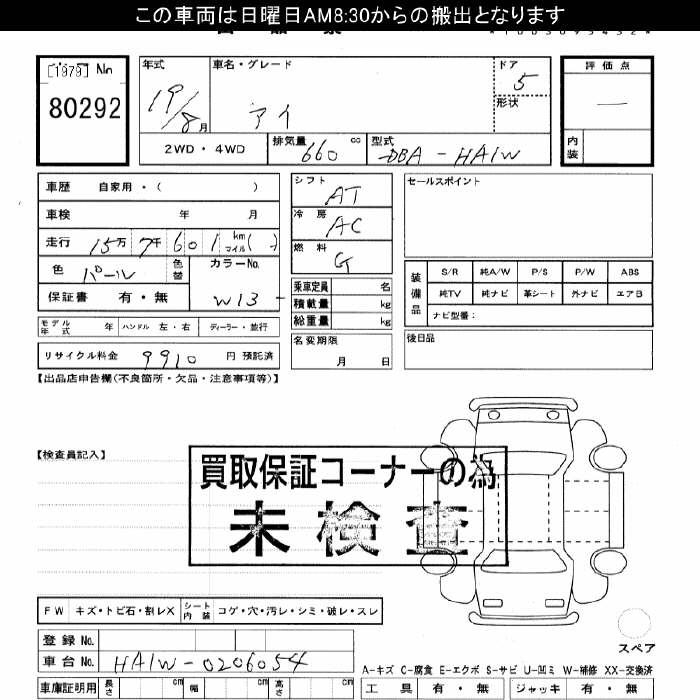 この車両は日曜日AM8:30からの搬出となります
*1003093432*
[1979] No
80292
年式 車名・グレード ドア 評価点
19/8月 アイ 5 —
形状
2WD・4WD 排気量 660 cc 型式 DBA-HA1W 内装
車歴 自家用・( )
車検 年 月
走行 15万 7千 6 0 1 km マイル( )
色 パール 色替 カラーNo.
保証書 有・無 W13
モデル年式 年 ハンドル 左・右 ディーラー・並行
リサイクル料金 9910 円 預託済
シフト AT
冷房 AC
燃料 G
乗車定員 名
積載量 kg
総重量 kg
名変期限
月 日
セールスポイント
装備品 S/R 純A/W P/S P/W ABS
純TV 純ナビ 革シート 外ナビ エアB
ナビ型番:
後日品
【出品店申告欄(不良箇所・欠品・注意事項等)】
【検査員記入】
買取保証コーナーの為
未検査
FW キズ・トビ石・割レX シート内装 コゲ・穴・汚レ・シミ・破レ・スレ
登録No.
車台No. HA1W-0206054
車庫証明用 長さ cm 幅 cm 高さ cm
スペア
A-キズ C-腐食 E-エクボ S-サビ U-凹ミ W-補修 XX-交換済
工具 有・無 ジャッキ 有・無